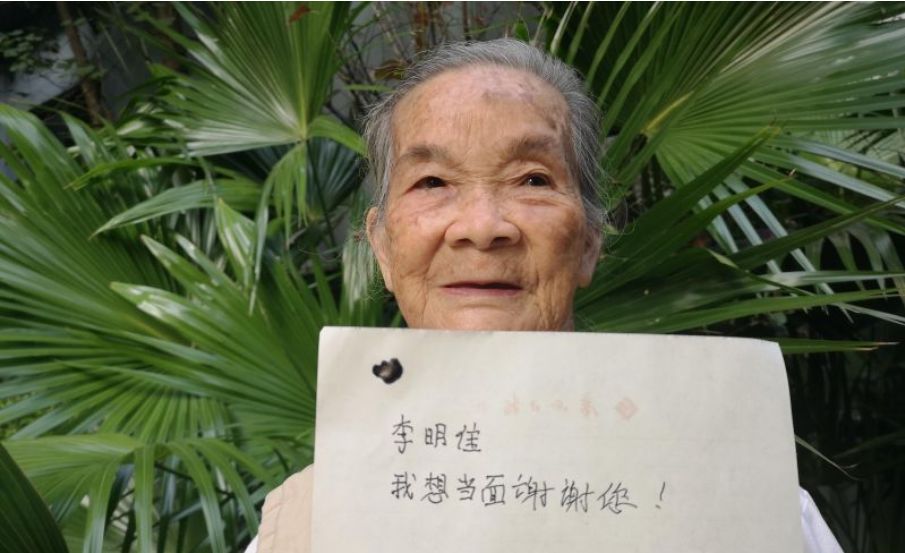 李明佳
我想当面谢谢您！